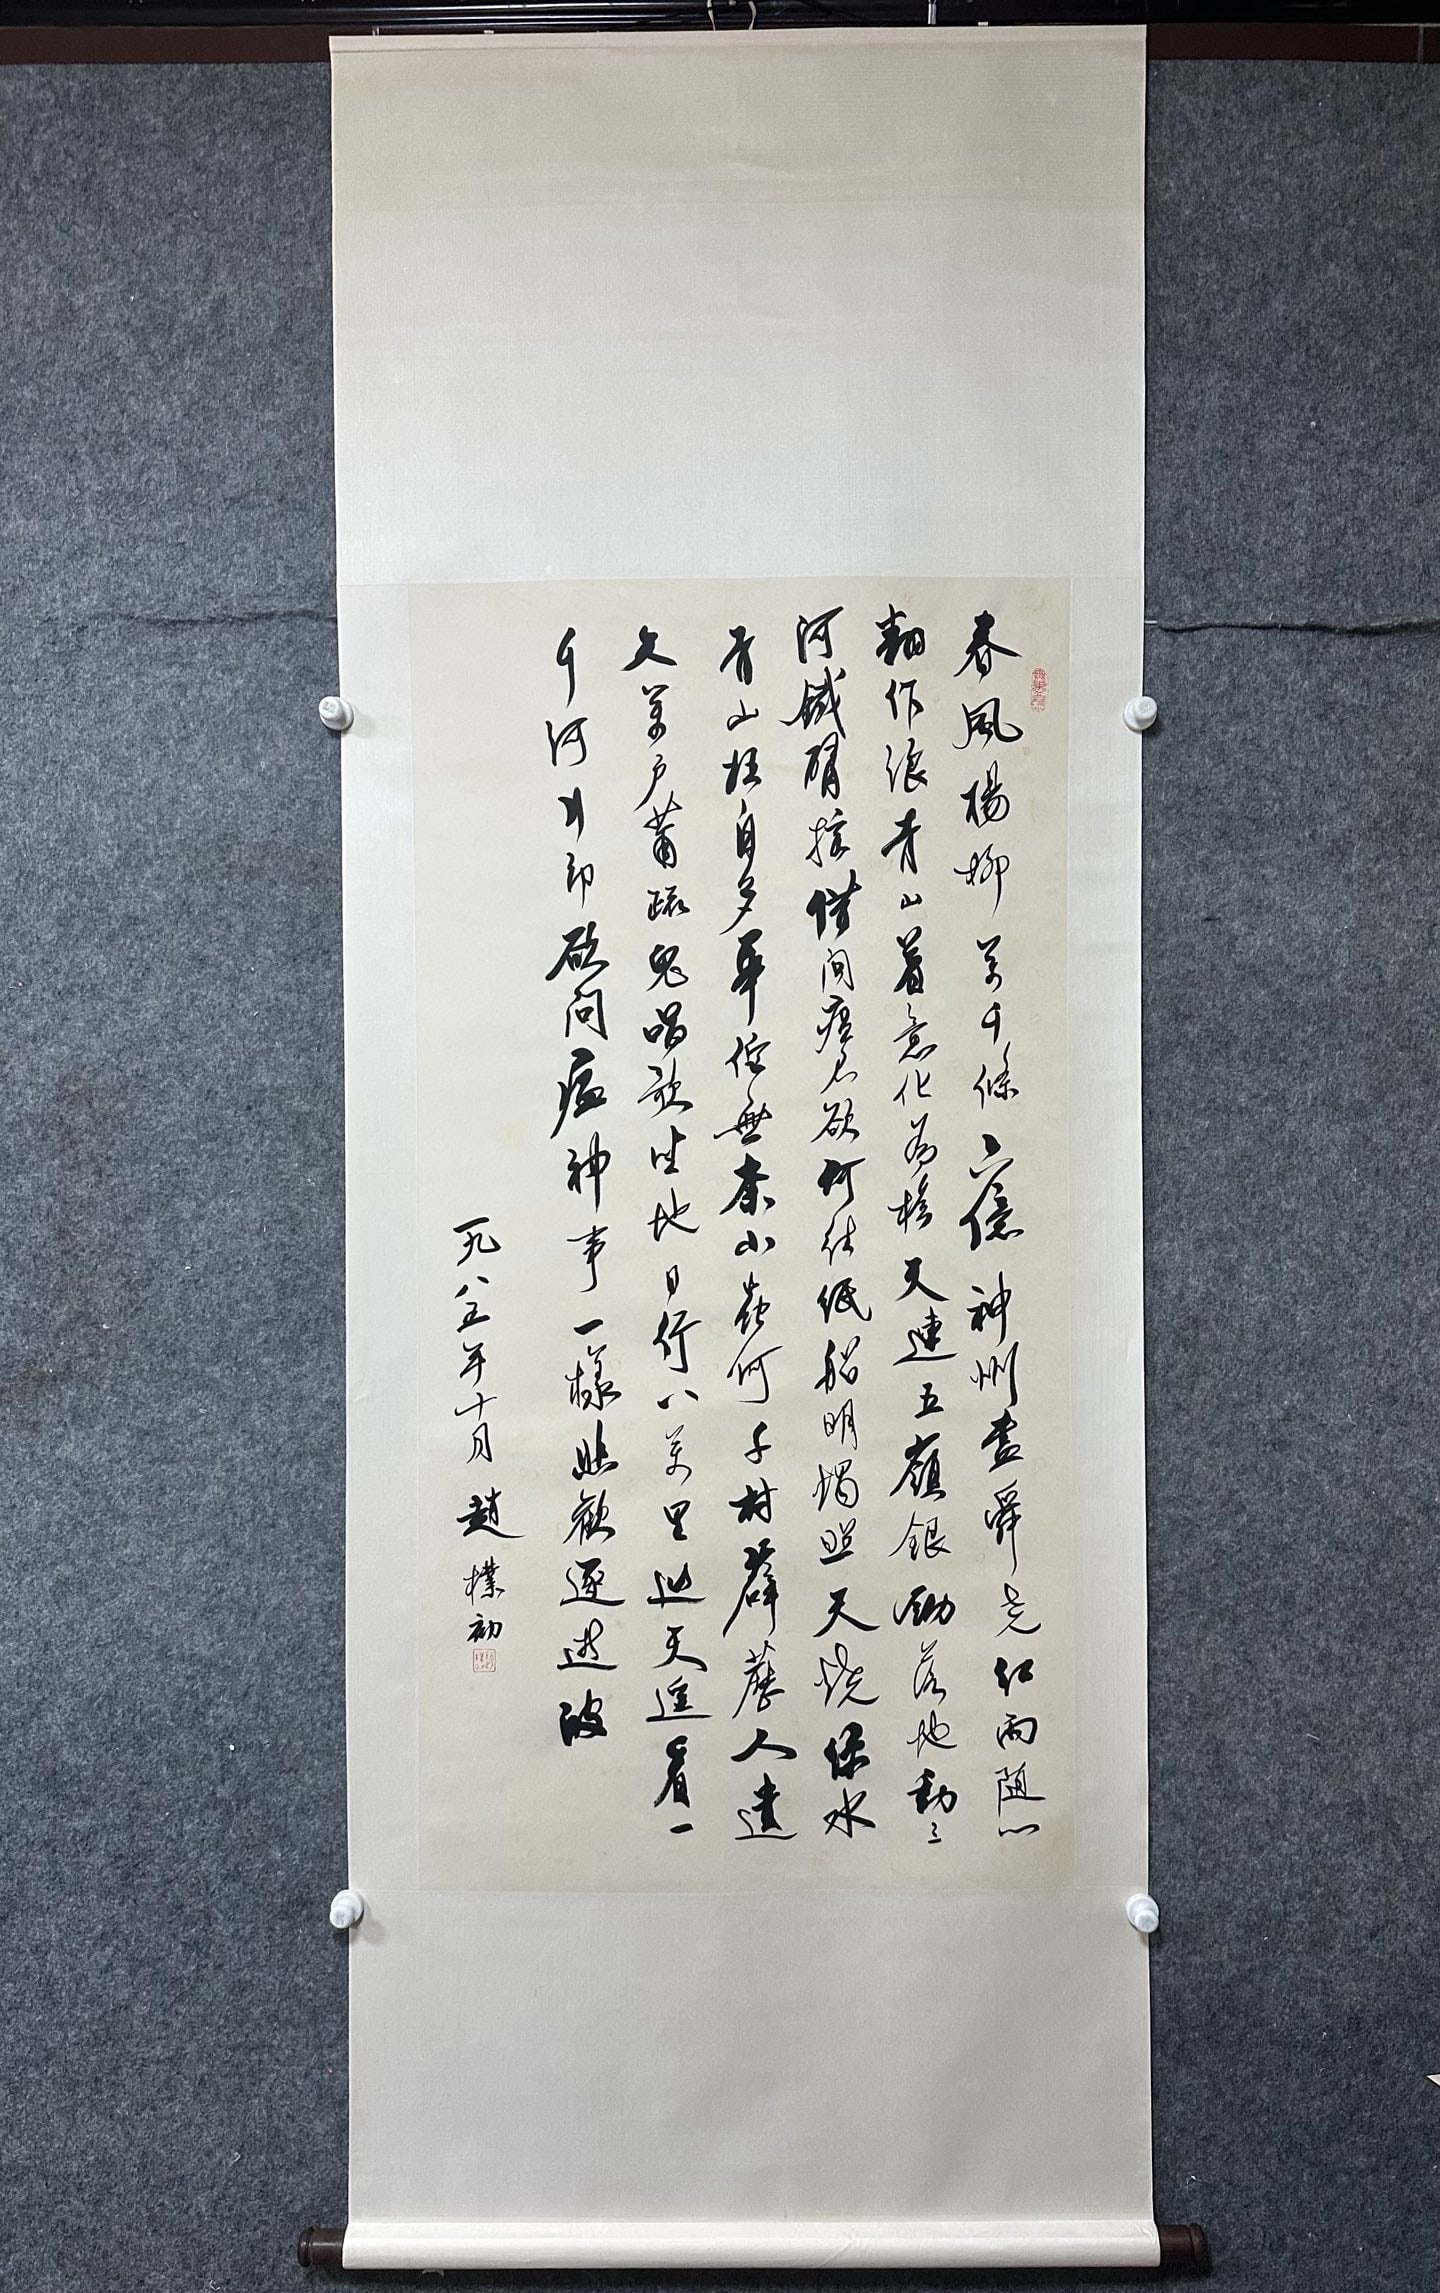 春風楊柳萬千條六億神州盡舜堯紅雨随心
翻作浪青山着意化為橋天連五嶺銀鋤落地動三
河鐵臂搖借問瘟君欲何往紙船明燭照天燒綠水
青山枉自多華佗無奈小蟲何千村薜荔人遺
矢萬户蕭疏鬼唱歌坐地日行八萬里巡天遥看一
千河牛郎欲問瘟神事一樣悲歡逐逝波
一九八五年十月 趙樸初